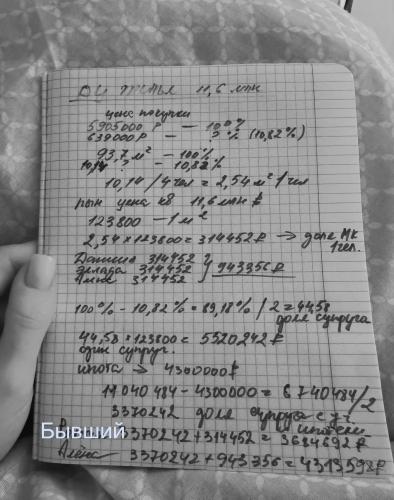 11,6 млн
цена покупки
5905000 ₽ — 100%
639000 ₽ — ? % (10,82%)
93,7 м² — 100%
10,14 ? — 10,82%
10,14 / 4 чел = 2,54 м² / чел
рын цена кв 11,6 млн ₽
123800 — 1 м²
2,54 × 123800 = 314452 ₽ → доля МК
1 чел.
314452
314452 } 943356 ₽
314452
100% - 10,82% = 89,18% / 2 = 44,58
доля супруга
44,58 * 123800 = 5520242 ₽
один супруг.
ипотека → 4300000 ₽
11 040 484 - 4300000 = 6 740484 / 2
3370242 доля супруга с
Бывший 3370242 + 314452 = 3684692 ₽
Алена 3370242 + 943356 = 4313598 ₽